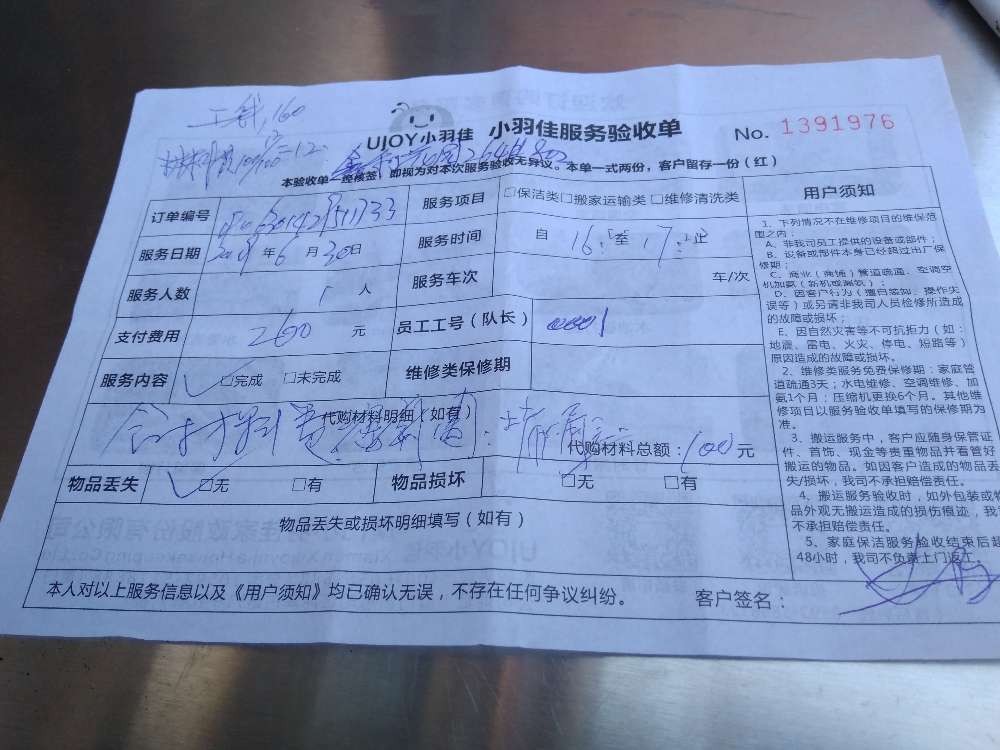 工钱,160
UJOY小羽佳 小羽佳服务验收单 No. 1391976
本验收单一经核签,即视为对本次服务验收无异议。本单一式两份,客户留存一份(红)
订单编号 服务项目 □保洁类□搬家运输类 □维修清洗类
服务日期 年 6 月 30 日 服务时间 自 16: 至 17: 止
服务人数 1 人 服务车次 车/次
支付费用 260 元 员工工号(队长) 0001
服务内容 □完成 □未完成 维修类保修期
代购材料明细(如有)
含材料费
代购材料总额: 100 元
物品丢失 □无 □有 物品损坏 □无 □有
物品丢失或损坏明细填写(如有)
本人对以上服务信息以及《用户须知》均已确认无误,不存在任何争议纠纷。 客户签名:
用户须知
1、下列情况不在维修项目的维保范
围之内:
A、非我司员工提供的设备或部件;
B、设备或部件本身已经超过出厂保
修期;
C、商业(商铺)管道疏通、空调空
机加氨(新机或漏氨);
D、因客户行为(擅自添加、操作失
误等)或另请非我司人员检修所造成
的故障或损坏;
E、因自然灾害等不可抗拒力(如:
地震、雷电、火灾、停电、短路等)
原因造成的故障或损坏。
2、维修类服务免费保修期:家庭管
道疏通3天;水电维修、空调维修、加
氨1个月;压缩机更换6个月。其他维
修项目以服务验收单填写的保修期为
准。
3、搬运服务中,客户应随身保管证
件、首饰、现金等贵重物品并看管好
搬运的物品。如因客户造成的物品丢
失/损坏,我司不承担赔偿责任。
4、搬运服务验收时,如外包装或物
品外观无搬运造成的损伤痕迹,我
不承担赔偿责任。
5、家庭保洁服务验收结束后超
48小时,我司不负责上门返工。